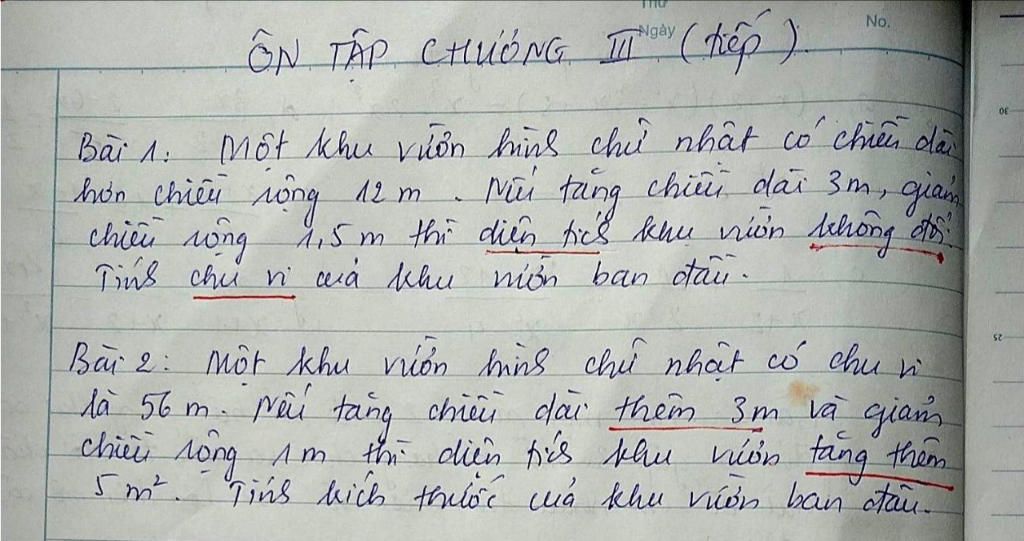 Thứ
Ngày
No.
ÔN TẬP CHƯƠNG III (tiếp).
Bài 1: Một khu vườn hình chữ nhật có chiều dài
hơn chiều rộng 12 m. Nếu tăng chiều dài 3m, giảm
chiều rộng 1,5 m thì diện tích khu vườn không đổi.
Tính chu vi của khu vườn ban đầu.
Bài 2: Một khu vườn hình chữ nhật có chu vi
là 56 m. Nếu tăng chiều dài thêm 3m và giảm
chiều rộng 1m thì diện tích khu vườn tăng thêm
5 m². Tính kích thước của khu vườn ban đầu.
30
25